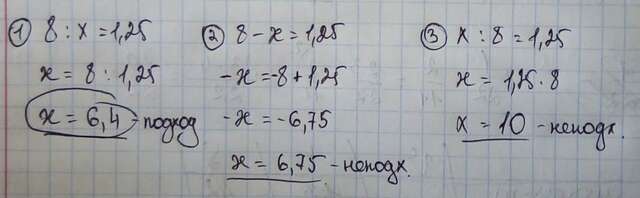 ① 8 : x = 1,25
x = 8 : 1,25
x = 6,4 - подход
② 8 - x = 1,25
-x = -8 + 1,25
-x = -6,75
x = 6,75 - неподх.
③ x : 8 = 1,25
x = 1,25 · 8
x = 10 - неподх.